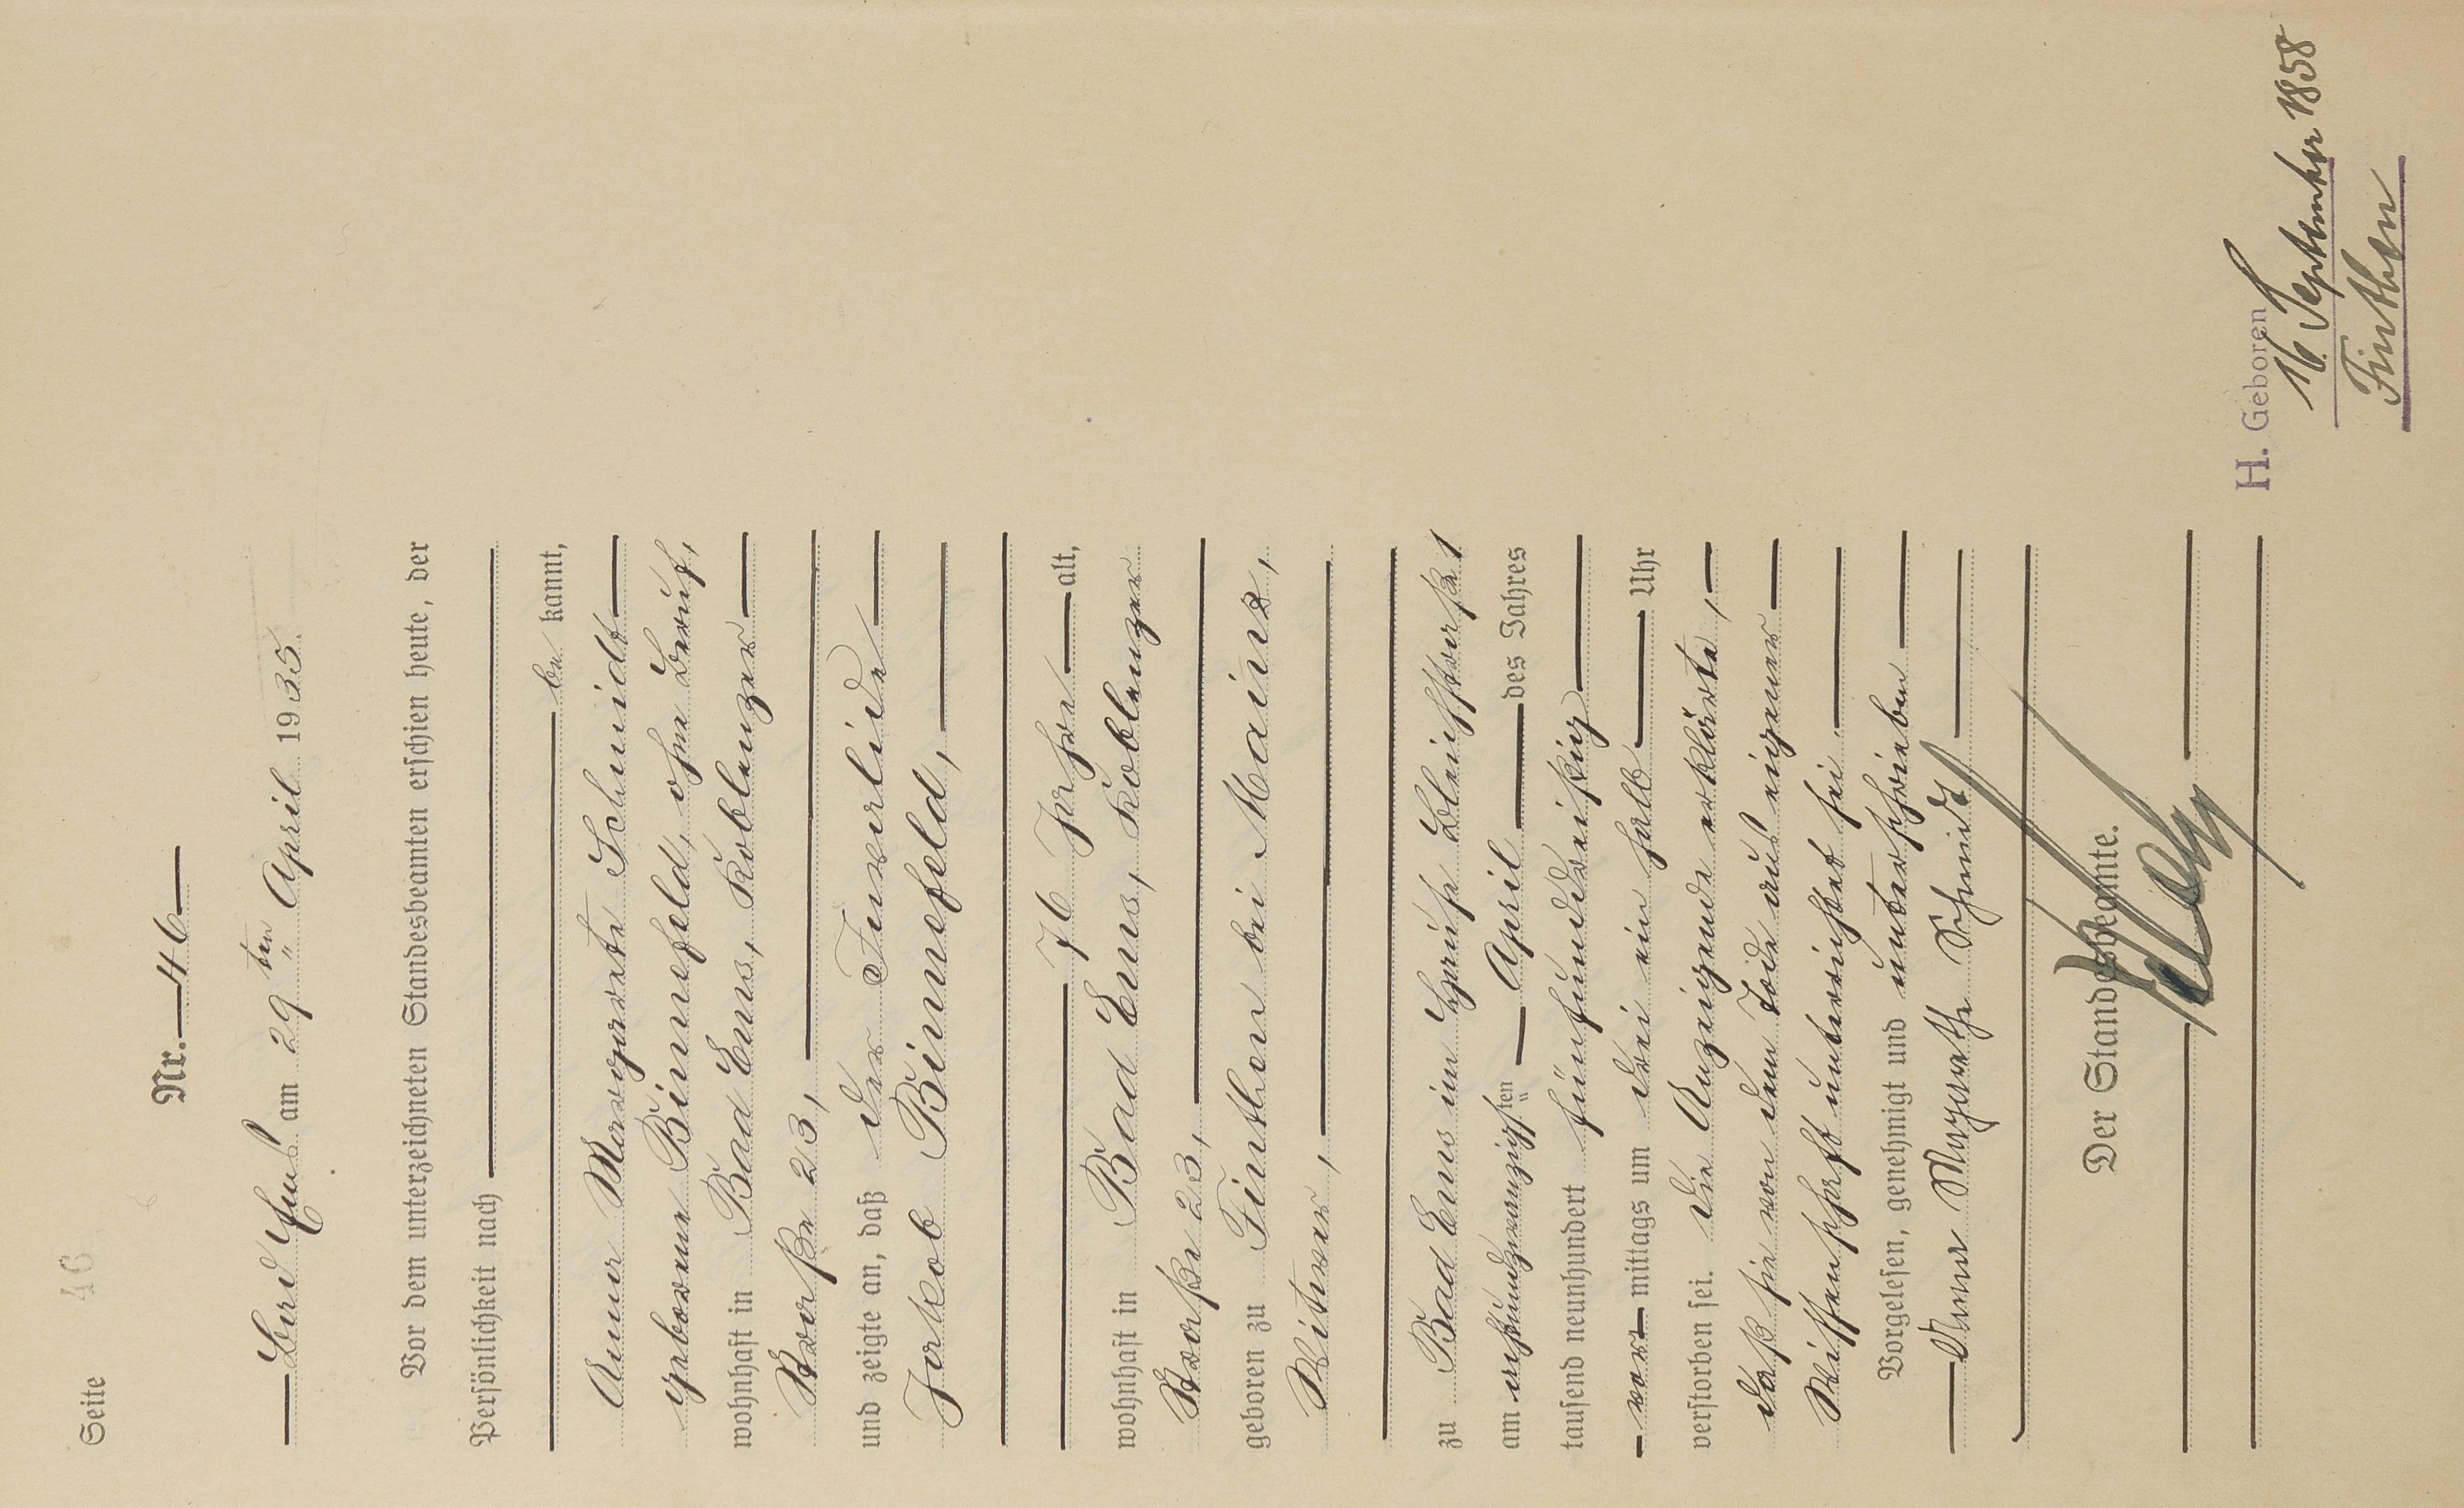 Seite 46
Nr. 46
Bad Ems am 29ten April 1935.
Vor dem unterzeichneten Standesbeamten erschien heute, der
Persönlichkeit nach
be kannt,
Anna Margarete Schmidt
geborene Binnefeld, ohne Beruf,
wohnhaft in Bad Ems, Koblenzer
Straße 23,
und zeigte an, daß der Invalide
Jakob Binnefeld,
76 Jahre alt,
wohnhaft in Bad Ems, Koblenzer
Straße 23,
geboren zu Finthen bei Mainz,
Witwer,
zu Bad Ems im Hause Bleichstraße 1
am achtundzwanzigsten April des Jahres
tausend neunhundert fünfunddreißig
vor mittags um drei ein halb Uhr
verstorben sei. Die Anzeigende erklärte,
daß sie von dem Tode aus eigener
Wissenschaft unterrichtet sei.
Vorgelesen, genehmigt und unterschrieben
Anna Margarethe Schmidt
Der Standesbeamte.
H. Geboren
16. September 1858
Finthen